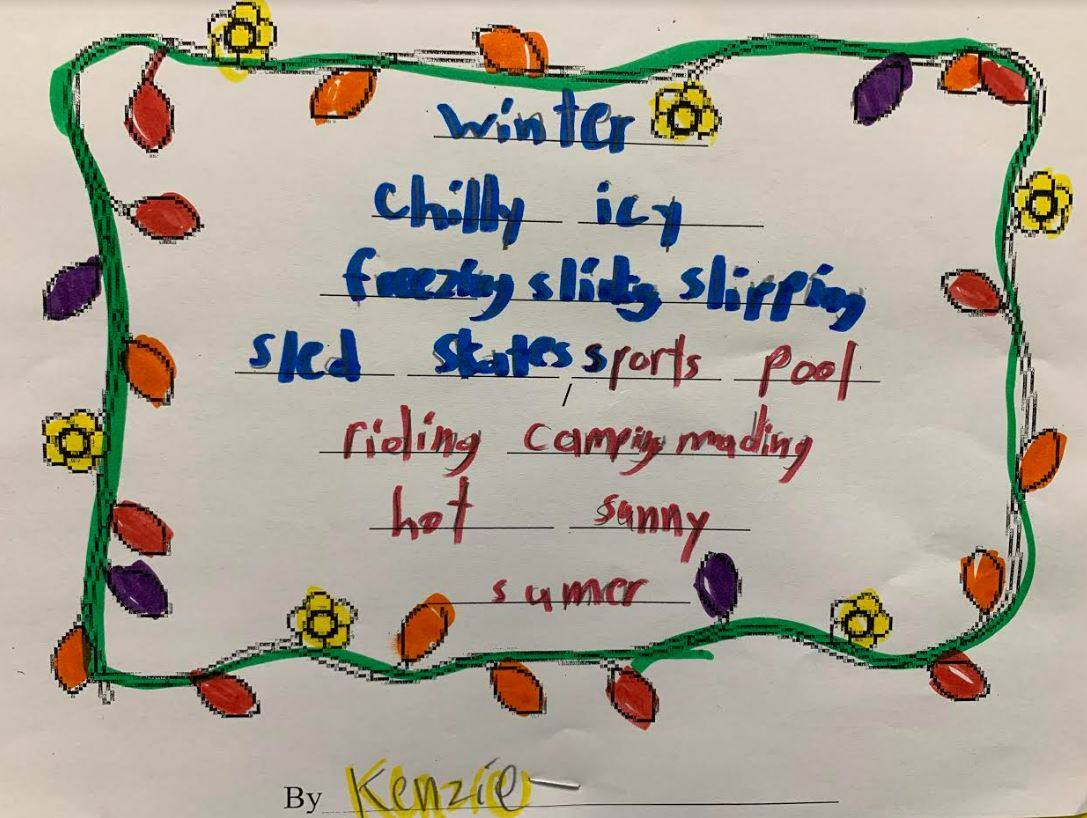 winter
chilly icy
freezing sliding slipping
sled skates, sports pool
riding camping
hot sunny
sumer
By Kenzie